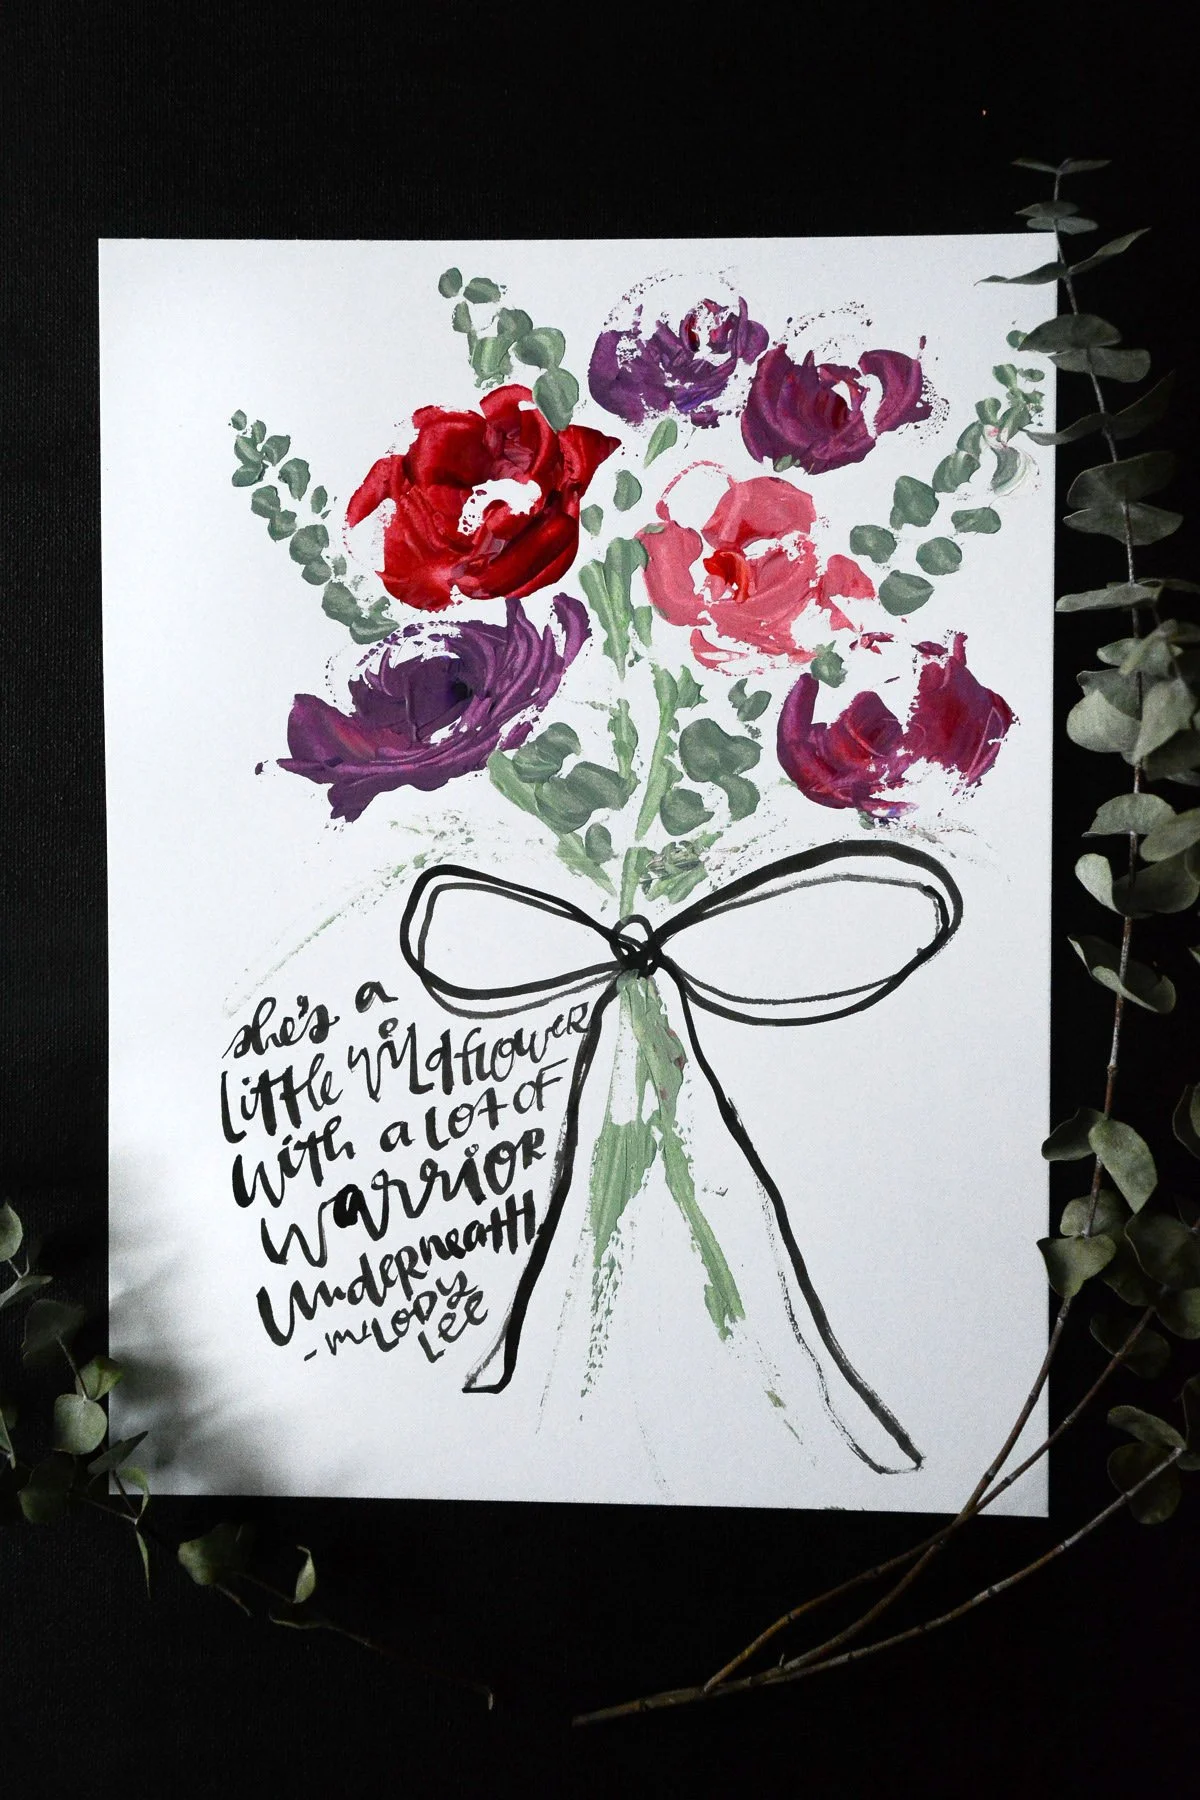 she's a
little wildflower
with a lot of
warrior
underneath
- melody
lee